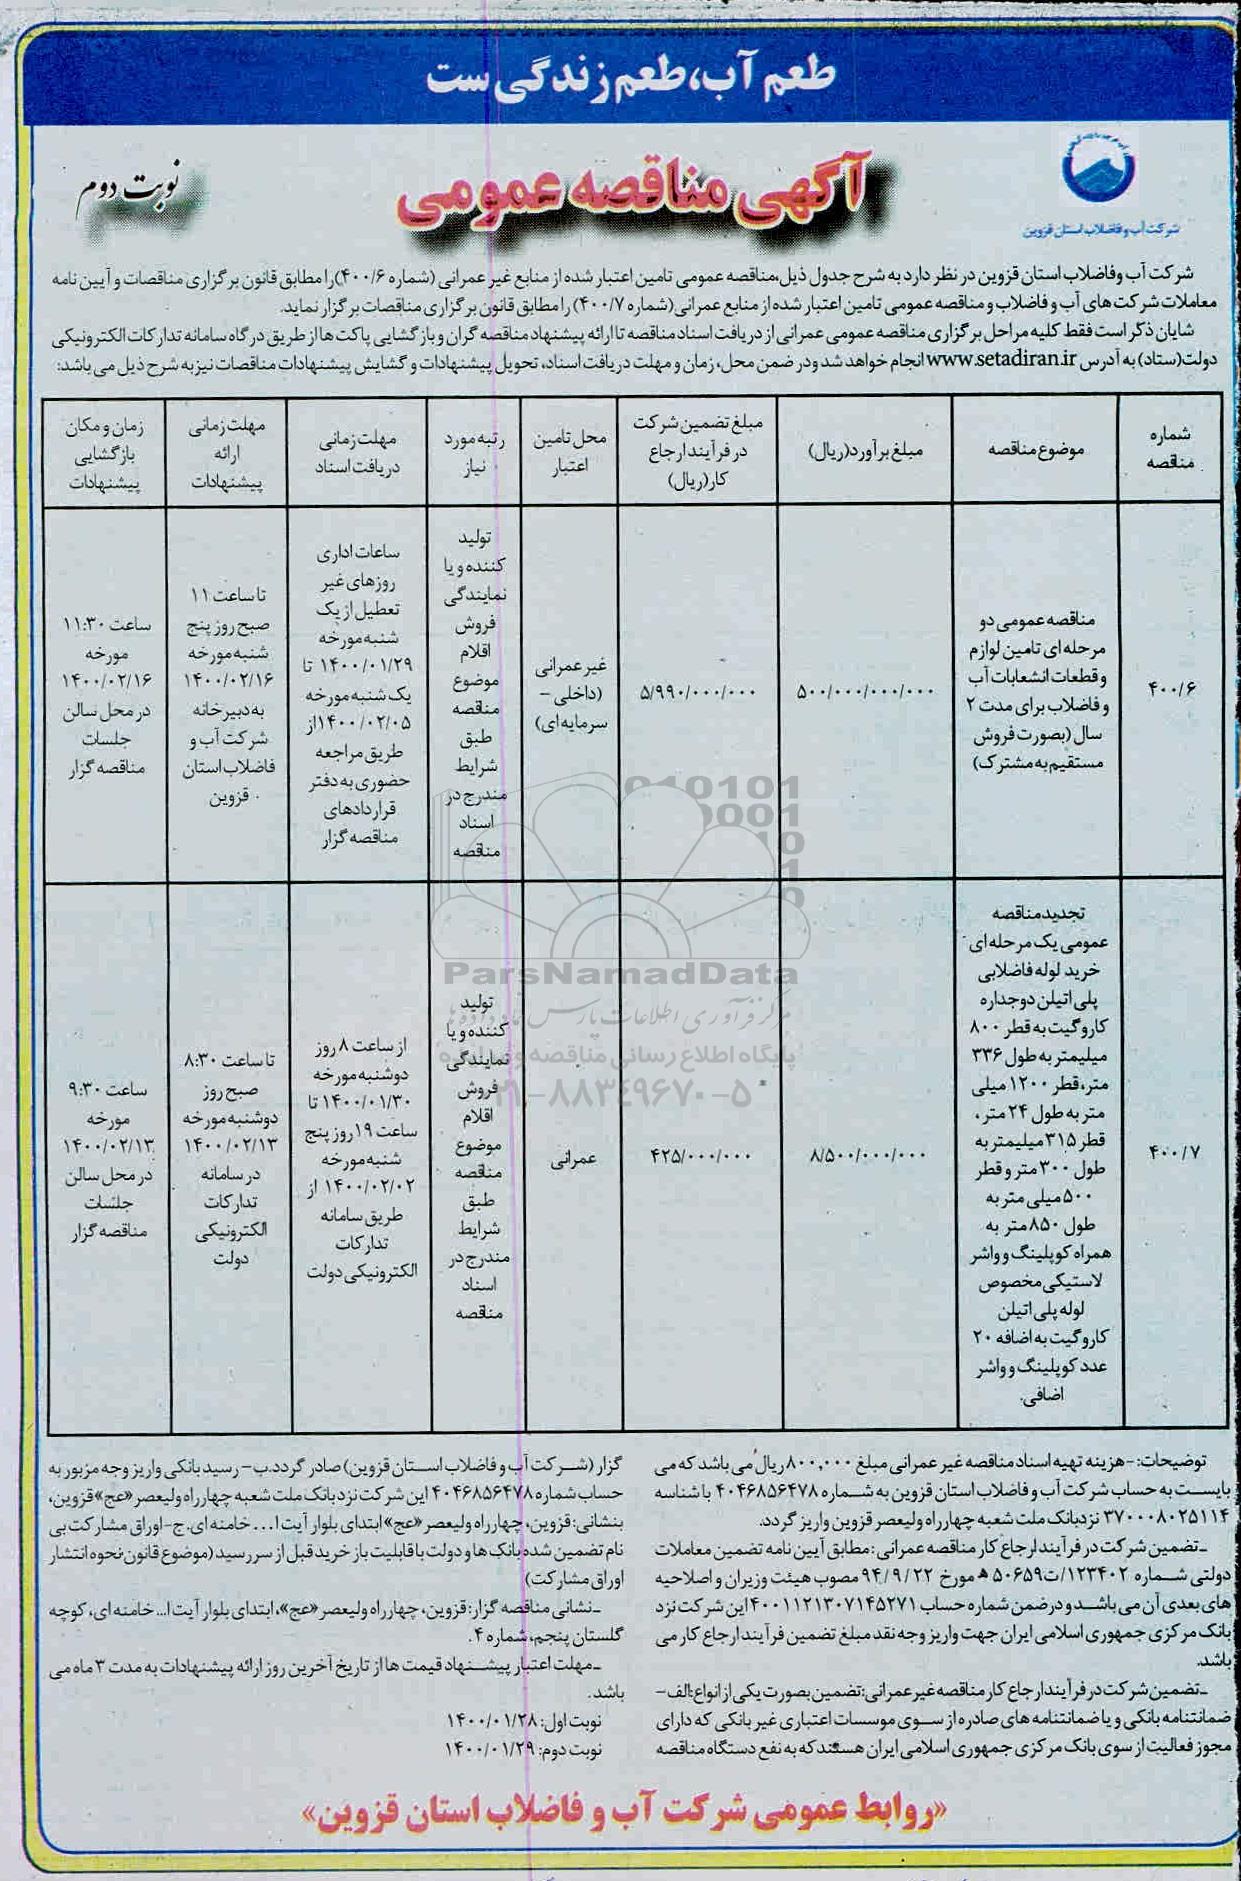 طعم آب، طعم زندگی ست
آگهی مناقصه عمومی
نوبت دوم
شرکت آب و فاضلاب استان قزوین
شرکت آب وفاضلاب استان قزوین در نظر دارد به شرح جدول ذیل،مناقصه عمومی تامین اعتبار شده از منابع غیر عمرانی (شماره ۴۰۰/۶)را مطابق قانون برگزاری مناقصات و آیین نامه
معاملات شرکت های آب و فاضلاب و مناقصه عمومی تامین اعتبار شده از منابع عمرانی(شماره ۴۰۰/۷) را مطابق قانون برگزاری مناقصات برگزار نماید.
شایان ذکر است فقط کلیه مراحل برگزاری مناقصه عمومی عمرانی از دریافت اسناد مناقصه تا ارائه پیشنهاد مناقصه گران و بازگشایی پاکت ها از طریق درگاه سامانه تدارکات الکترونیکی
دولت(ستاد) به آدرس www.setadiran.ir انجام خواهد شد ودر ضمن محل، زمان و مهلت دریافت اسناد، تحویل پیشنهادات و گشایش پیشنهادات مناقصات نیز به شرح ذیل می باشد:
شماره
مناقصه
موضوع مناقصه
مبلغ برآورد(ریال)
مبلغ تضمین شرکت
در فرآیند ارجاع
کار(ریال)
محل تامین
اعتبار
رتبه مورد
نیاز
مهلت زمانی
دریافت اسناد
مهلت زمانی
ارائه
پیشنهادات
زمان و مکان
بازگشایی
پیشنهادات
۴۰۰/۶
مناقصه عمومی دو
مرحله ای تامین لوازم
و قطعات انشعابات آب
و فاضلاب برای مدت ۲
سال (بصورت فروش
مستقیم به مشترک)
۵۰۰/۰۰۰/۰۰۰/۰۰۰
۵/۹۹۰/۰۰۰/۰۰۰
غیر عمرانی
(داخلی -
سرمایه ای)
تولید
کننده و یا
نمایندگی
فروش
اقلام
موضوع
مناقصه
طبق
شرایط
مندرج در
اسناد
مناقصه
ساعات اداری
روزهای غیر
تعطیل از یک
شنبه مورخه
۱۴۰۰/۰۱/۲۹ تا
یک شنبه مورخه
۱۴۰۰/۰۲/۰۵از
طریق مراجعه
حضوری به دفتر
قراردادهای
مناقصه گزار
تا ساعت ۱۱
صبح روز پنج
شنبه مورخه
۱۴۰۰/۰۲/۱۶
به دبیرخانه
شرکت آب و
فاضلاب استان
قزوین
ساعت ۱۱:۳۰
مورخه
۱۴۰۰/۰۲/۱۶
در محل سالن
جلسات
مناقصه گزار
۴۰۰/۷
تجدید مناقصه
عمومی یک مرحله ای
خرید لوله فاضلابی
پلی اتیلن دوجداره
کاروگیت به قطر ۸۰۰
میلیمتر به طول ۳۳۶
متر،قطر ۱۲۰۰ میلی
متر به طول ۲۴ متر ،
قطر ۳۱۵ میلیمتر به
طول ۳۰۰ متر و قطر
۵۰۰ میلی متر به
طول ۸۵۰ متر به
همراه کوپلینگ و واشر
لاستیکی مخصوص
لوله پلی اتیلن
کاروگیت به اضافه ۲۰
عدد کوپلینگ و واشر
اضافی.
۸/۵۰۰/۰۰۰/۰۰۰
۴۲۵/۰۰۰/۰۰۰
عمرانی
تولید
کننده و یا
نمایندگی
فروش
اقلام
موضوع
مناقصه
طبق
شرایط
مندرج در
اسناد
مناقصه
از ساعت ۸ روز
دوشنبه مورخه
۱۴۰۰/۰۱/۳۰ تا
ساعت ۱۹ روز پنج
شنبه مورخه
۱۴۰۰/۰۲/۰۲ از
طریق سامانه
تدارکات
الکترونیکی دولت
تا ساعت ۸:۳۰
صبح روز
دوشنبه مورخه
۱۴۰۰/۰۲/۱۳
در سامانه
تدارکات
الکترونیکی
دولت
ساعت ۹:۳۰
مورخه
۱۴۰۰/۰۲/۱۳
در محل سالن
جلسات
مناقصه گزار
ParsNamadData
مرکز فرآوری اطلاعات پارس نماد داده ها
پایگاه اطلاع رسانی مناقصه و مزایده
۰۲۱-۸۸۳۴۹۶۷۰-۵
توضیحات: -هزینه تهیه اسناد مناقصه غیر عمرانی مبلغ ۸۰۰,۰۰۰ریال می باشد که می
بایست به حساب شرکت آب و فاضلاب استان قزوین به شماره ۴۰۴۶۸۵۶۴۷۸ با شناسه
۳۷۰۰۰۸۰۲۵۱۱۴ نزدبانک ملت شعبه چهارراه ولیعصر قزوین واریز گردد.
-تضمین شرکت در فرآیند ارجاع کار مناقصه عمرانی: مطابق آیین نامه تضمین معاملات
دولتی شماره ۱۲۳۴۰۲/ت۵۰۶۵۹ ه مورخ ۹۴/۹/۲۲ مصوب هیئت وزیران و اصلاحیه
های بعدی آن می باشد و در ضمن شماره حساب ۴۰۰۱۱۲۱۳۰۷۱۴۵۲۷۱ این شرکت نزد
بانک مرکزی جمهوری اسلامی ایران جهت واریز وجه نقد مبلغ تضمین فرآیند ارجاع کار می
باشد.
-تضمین شرکت در فرآیند ارجاع کار مناقصه غیر عمرانی:تضمین بصورت یکی از انواع:الف-
ضمانتنامه بانکی و یا ضمانتنامه های صادره از سوی موسسات اعتباری غیر بانکی که دارای
مجوز فعالیت از سوی بانک مرکزی جمهوری اسلامی ایران هستند که به نفع دستگاه مناقصه
گزار (شرکت آب و فاضلاب استان قزوین) صادر گردد.ب- رسید بانکی واریز وجه مزبور به
حساب شماره ۴۰۴۶۸۵۶۴۷۸ این شرکت نزد بانک ملت شعبه چهارراه ولیعصر «عج» قزوین،
بنشانی: قزوین، چهارراه ولیعصر «عج» ابتدای بلوار آیت ا... خامنه ای.ج-اوراق مشارکت بی
نام تضمین شده بانک ها و دولت با قابلیت باز خرید قبل از سررسید (موضوع قانون نحوه انتشار
اوراق مشارکت)
-نشانی مناقصه گزار: قزوین، چهارراه ولیعصر «عج»، ابتدای بلوار آیت ا... خامنه ای، کوچه
گلستان پنجم، شماره ۴.
-مهلت اعتبار پیشنهاد قیمت ها از تاریخ آخرین روز ارائه پیشنهادات به مدت ۳ ماه می
باشد.
نوبت اول: ۱۴۰۰/۰۱/۲۸
نوبت دوم: ۱۴۰۰/۰۱/۲۹
«روابط عمومی شرکت آب و فاضلاب استان قزوین»